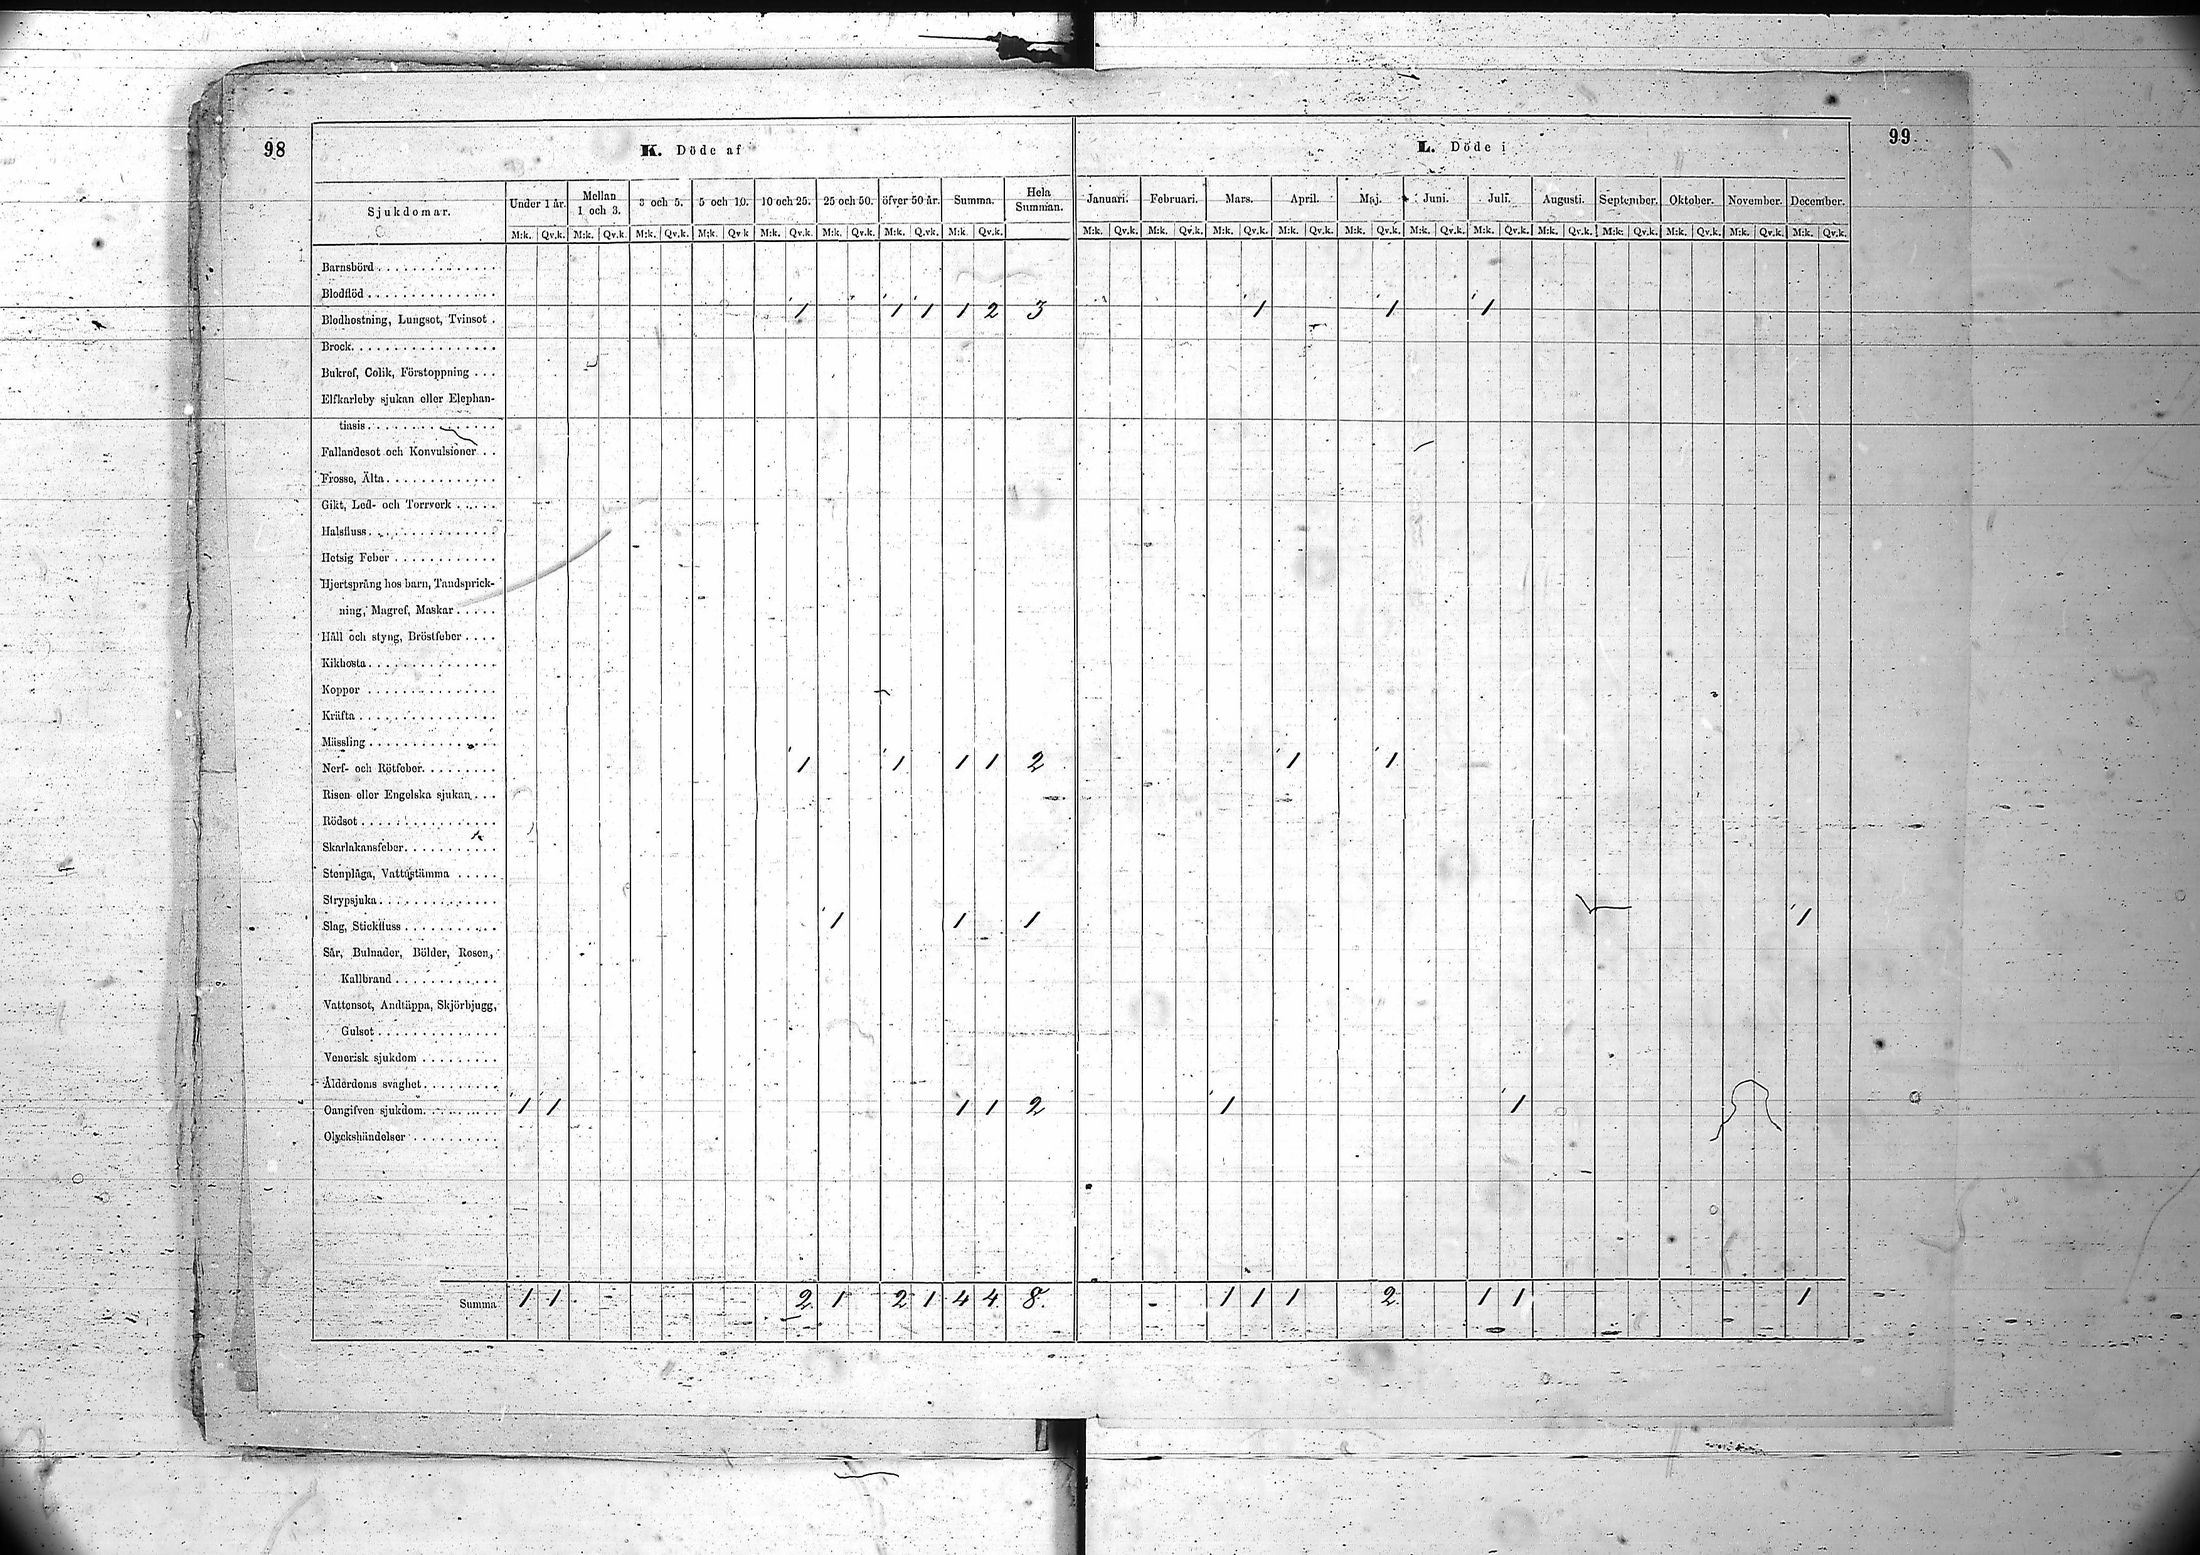 98
99
K. Döde af
L. Döde i
Sjukdomar. Under 1 år. Mellan 1 och 3. 3 och 5. 5 och 10. 10 och 25. 25 och 50. öfver 50 år. Summa. Hela Summan. Januari. Februari. Mars. April. Maj. Juni. Juli. Augusti. September. Oktober. November. December.
M:k. Qv.k. M:k. Qv.k. M:k. Qv.k. M:k. Qv.k M:k. Qv.k. M:k. Qv.k. M:k. Qv.k. M:k. Qv.k. M:k. Qv.k. M:k. Qv.k. M:k. Qv.k. M:k. Qv.k. M:k. Qv.k. M:k. Qv.k. M:k. Qv.k. M:k. Qv.k. M:k. Qv.k. M:k. Qv.k. M:k. Qv.k. M:k. Qv.k.
Barnsbörd
Blodflöd
Blodhostning, Lungsot, Tvinsot . 1 1 1 1 2 3 1 1 1
Brock
Bukref, Colik, Förstoppning . . .
Elfkarleby sjukan eller Elephan-
tiasis
Fallandesot och Konvulsioner . .
Frosse, Älta
Gikt, Led- och Torrverk
Halsfluss
Hetsig Feber
Hjertsprång hos barn, Tandsprick-
ning, Magref, Maskar
Håll och styng, Bröstfeber
Kikhosta
Koppor
Kräfta
Mässling
Nerf- och Rötfeber 1 1 1 1 2 1 1
Risen eller Engelska sjukan . . .
Rödsot
Skarlakansfeber
Stenplåga, Vattustämma
Strypsjuka
Slag, Stickfluss 1 1 1 1
Sår, Bulnader, Bölder, Rosen,
Kallbrand
Vattensot, Andtäppa, Skjörbjugg,
Gulsot
Venerisk sjukdom
Ålderdoms svaghet
Oangifven sjukdom 1 1 1 1 2 1 1
Olyckshändelser
Summa 1 1 2 1 2 1 4 4 8. 1 1 1 2 1 1 1